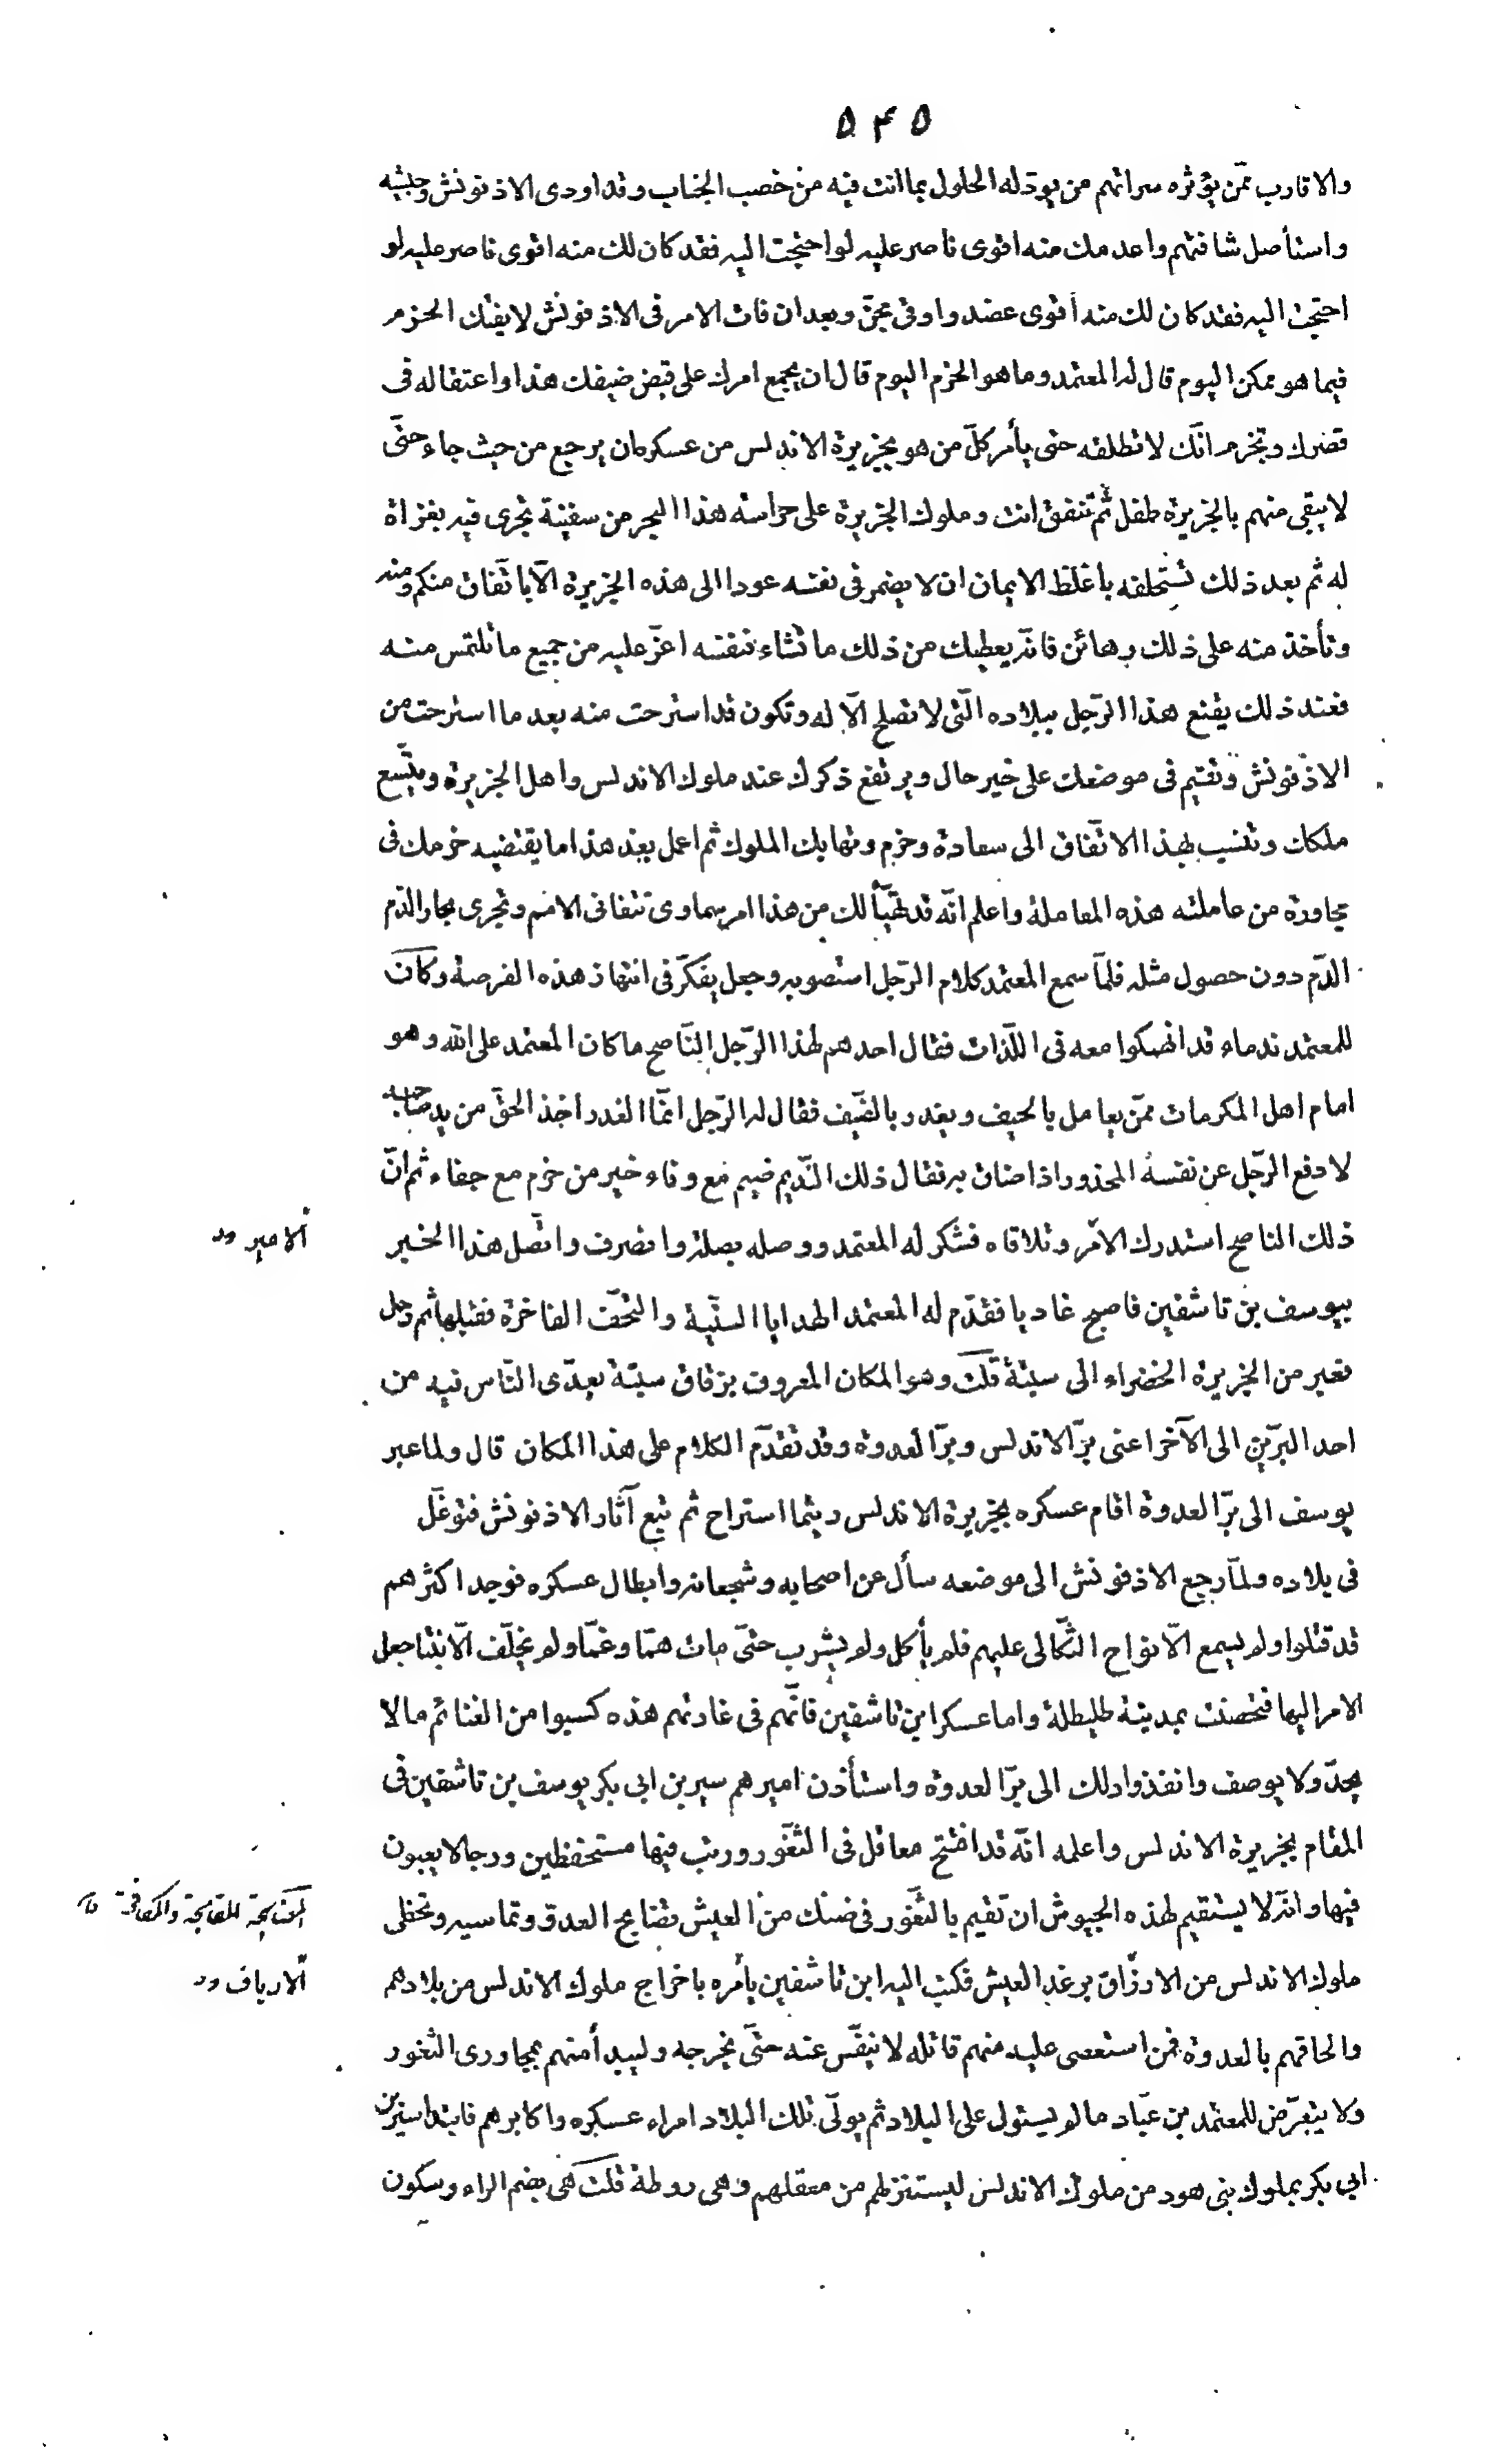 ٥٤٥
والاقارب ممّن يؤثره سراتهم من يودّ له الحلول بما انت فيه من خصب الجناب وقد اودى الاذفونش وجيشه
واستأصل شافتهم واعدمك منه اقوى ناصر عليه لو احتجت اليه فقد كان لك منه اقوى ناصر عليه لو
احتجت اليه فقد كان لك منه أقوى عضد واوقى مجنّ وبعد ان فات الامر فى الاذفونش لا يفتك الحزم
فيما هو ممكن اليوم قال له المعتمد وما هو الحزم اليوم قال ان يجمع امرك على قبض ضيفك هذا واعتقاله فى
قصرك وتجزم انّك لا تطلقه حتى يأمر كلّ من هو بجزيرة الاندلس من عسكره ان يرجع من حيث جاء حتّى
لا يبقى منهم بالجزيرة طفل ثمّ تتفق انت وملوك الجزيرة على حراسة هذا البحر من سفينة تجرى فيه بغزاة
له ثم بعد ذلك تستحلفه باغلظ الايمان ان لا يضمر فى نفسه عودا الى هذه الجزيرة الّا باتّفاق منكم ومنه
وتأخذ منه على ذلك رهائن فانّه يعطيك من ذلك ما تشاء فنفسه اعزّ عليه من جميع ما تلتمس منه
فعند ذلك يقنع هذا الرّجل ببلاده الّتى لا تصلح الّا له وتكون قد استرحت منه بعد ما استرحت من
الاذفونش وتقيم فى موضعك على خير حال ويرتفع ذكرك عند ملوك الاندلس واهل الجزيرة ويتّسع
ملكك وتنسب بهذا الاتّفاق الى سعادة وحزم وتهابك الملوك ثم اعمل بعد هذا ما يقتضيه حزمك فى
مجاورة من عاملته هذه المعاملة واعلم انّه قد تهيّأ لك من هذا امر سماوى تتفانى الامم وتجرى بحار الدّم
الدّم دون حصول مثله فلمّا سمع المعتمد كلام الرّجل استصوبه وجعل يفكّر فى انتهاز هذه الفرصة وكان
للمعتمد ندماء قد انهمكوا معه فى اللّذات فقال احدهم لهذا الرّجل النّاصح ما كان المعتمد على الله وهو
امام اهل المكرمات ممّن يعامل بالحيف ويغدر بالضّيف فقال له الرّجل انّما الغدر اخذ الحقّ من يد صاحبه
لا دفع الرّجل عن نفسه المحذور اذا ضاق به فقال ذلك النّديم ضيم مع وفاء خير من حزم مع جفاء ثم انّ
ذلك الناصح استدرك الامر وتلافاه فشكر له المعتمد ووصله بصلة وانصرف واتّصل هذا الخبر
الامير
بيوسف بن تاشفين فاصبح غاديا فقدّم له المعتمد الهدايا السنيّة والتحف الفاخرة فقبلها ثم رحل
فعبر من الجزيرة الخضراء الى سبتة قلت وهو المكان المعروف بزقاق سبتة يعدّى النّاس فيه من
احد البرّين الى الآخر اعنى برّ الاندلس وبرّ العدوة وقد تقدّم الكلام على هذا المكان قال ولما عبر
يوسف الى برّ العدوة اقام عسكره بجزيرة الاندلس ريثما استراح ثم تبع آثار الاذفونش فتوغّل
فى بلاده ولمّا رجع الاذفونش الى موضعه سأل عن اصحابه وشجعانه وابطال عسكره فوجد اكثرهم
قد قتلوا ولم يسمع الّا نواح الثّكالى عليهم فلم يأكل ولم يشرب حتّى مات همّا وغمّا ولم يخلّف الّا بنتا جعل
الامر اليها فتحصنت بمدينة طليطلة واما عسكر ابن تاشفين فانّهم فى غارتهم هذه كسبوا من الغنائم ما لا
يحدّ ولا يوصف وانفذوا ذلك الى برّ العدوة واستأذن اميرهم سير بن ابى بكر يوسف بن تاشفين فى
المقام بجزيرة الاندلس واعلمه انّه قد افتتح معاقل فى الثّغور ورتب فيها مستحفظين ورجالا يعبون
فيها وانّه لا يستقيم لهذه الجيوش ان تقيم بالثّغور فى ضنك من العيش تصابح العدو وتماسيه وتحظى
ملوك الاندلس من الارزاق برغد العيش فكتب اليه ابن تاشفين يأمره باخراج ملوك الاندلس من بلادهم
الارياف
والحاقهم بالعدوة فمن استعصى عليه منهم قاتله لا ينفّس عنه حتّى يخرجه وليبدأ منهم بمجاورى الثغور
ولا يتعرّض للمعتمد بن عبّاد ما لم يستول على البلاد ثم يولّى تلك البلاد امراء عسكره واكابرهم فابتدا سير بن
ابى بكر بملوك بنى هود من ملوك الاندلس ليستنزلهم من معقلهم وهى روطة قلت هى بضم الراء وسكون